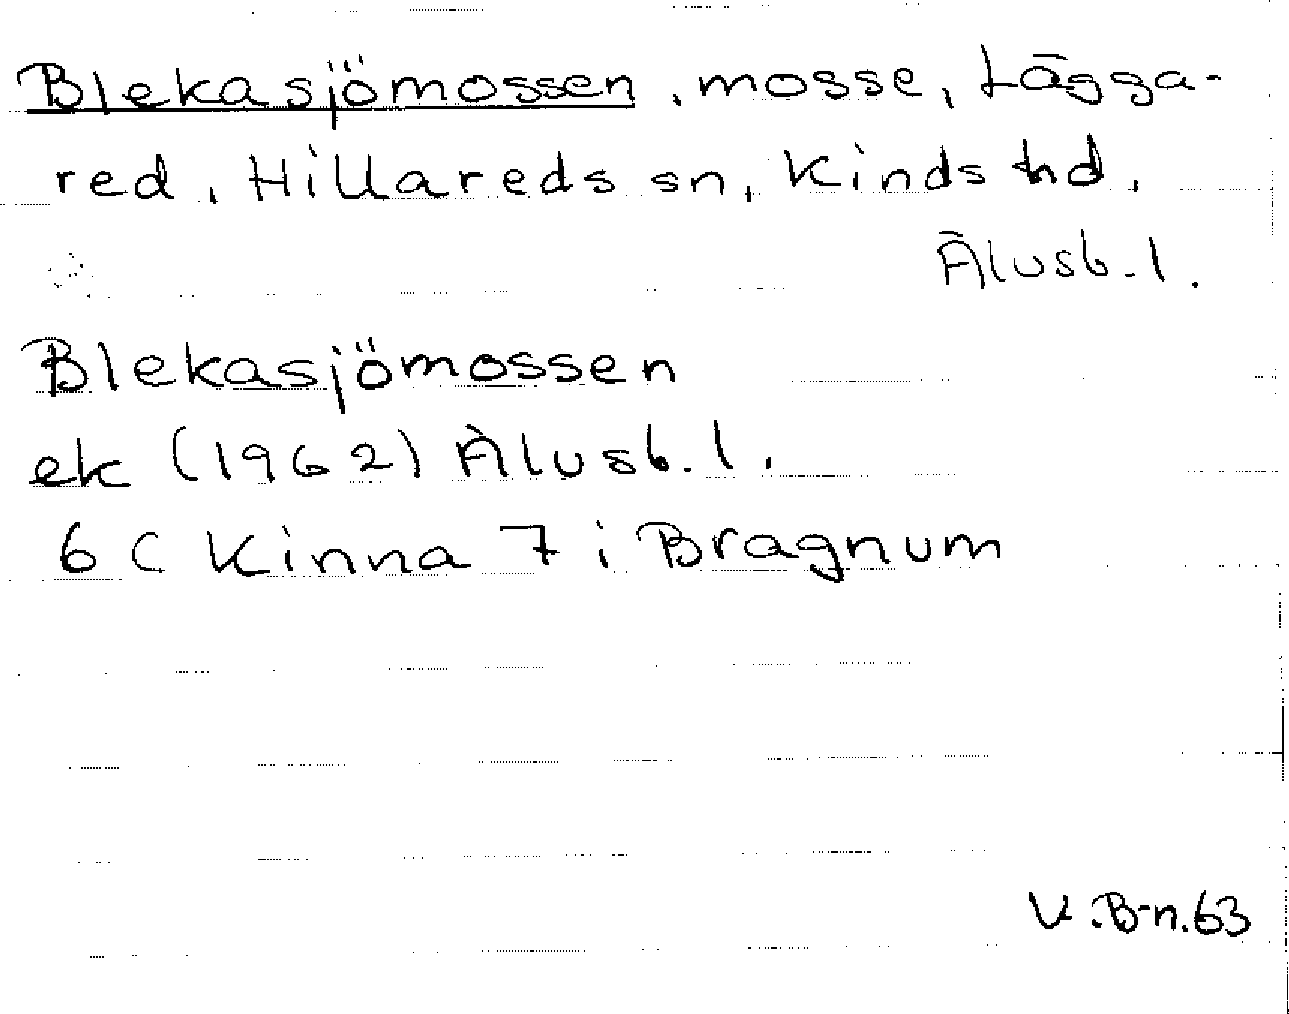 Blekasjömossen, mosse, Lågga-
red, Hillareds sn, Kinds hd,
Älvsb. l.
Blekasjömossen
ek (1962) Älvsb. l.
6 C Kinna 7 i Bragnum
V. B-n. 63